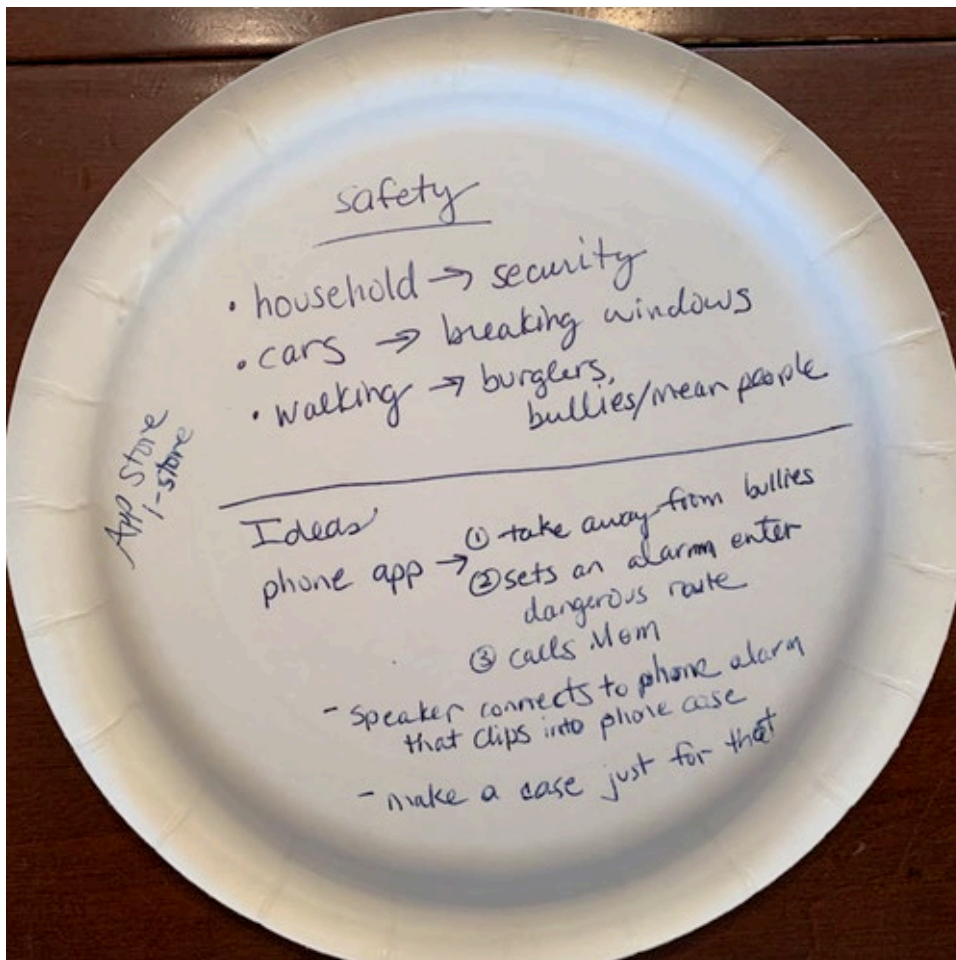 safety
• household → security
• cars → breaking windows
• walking → burglers,
bullies/mean people
App Store
i-store
Ideas
phone app → ① take away from bullies
② sets an alarm enter
dangerous route
③ calls Mom
- speaker connects to phone alarm
that clips into phone case
- make a case just for that